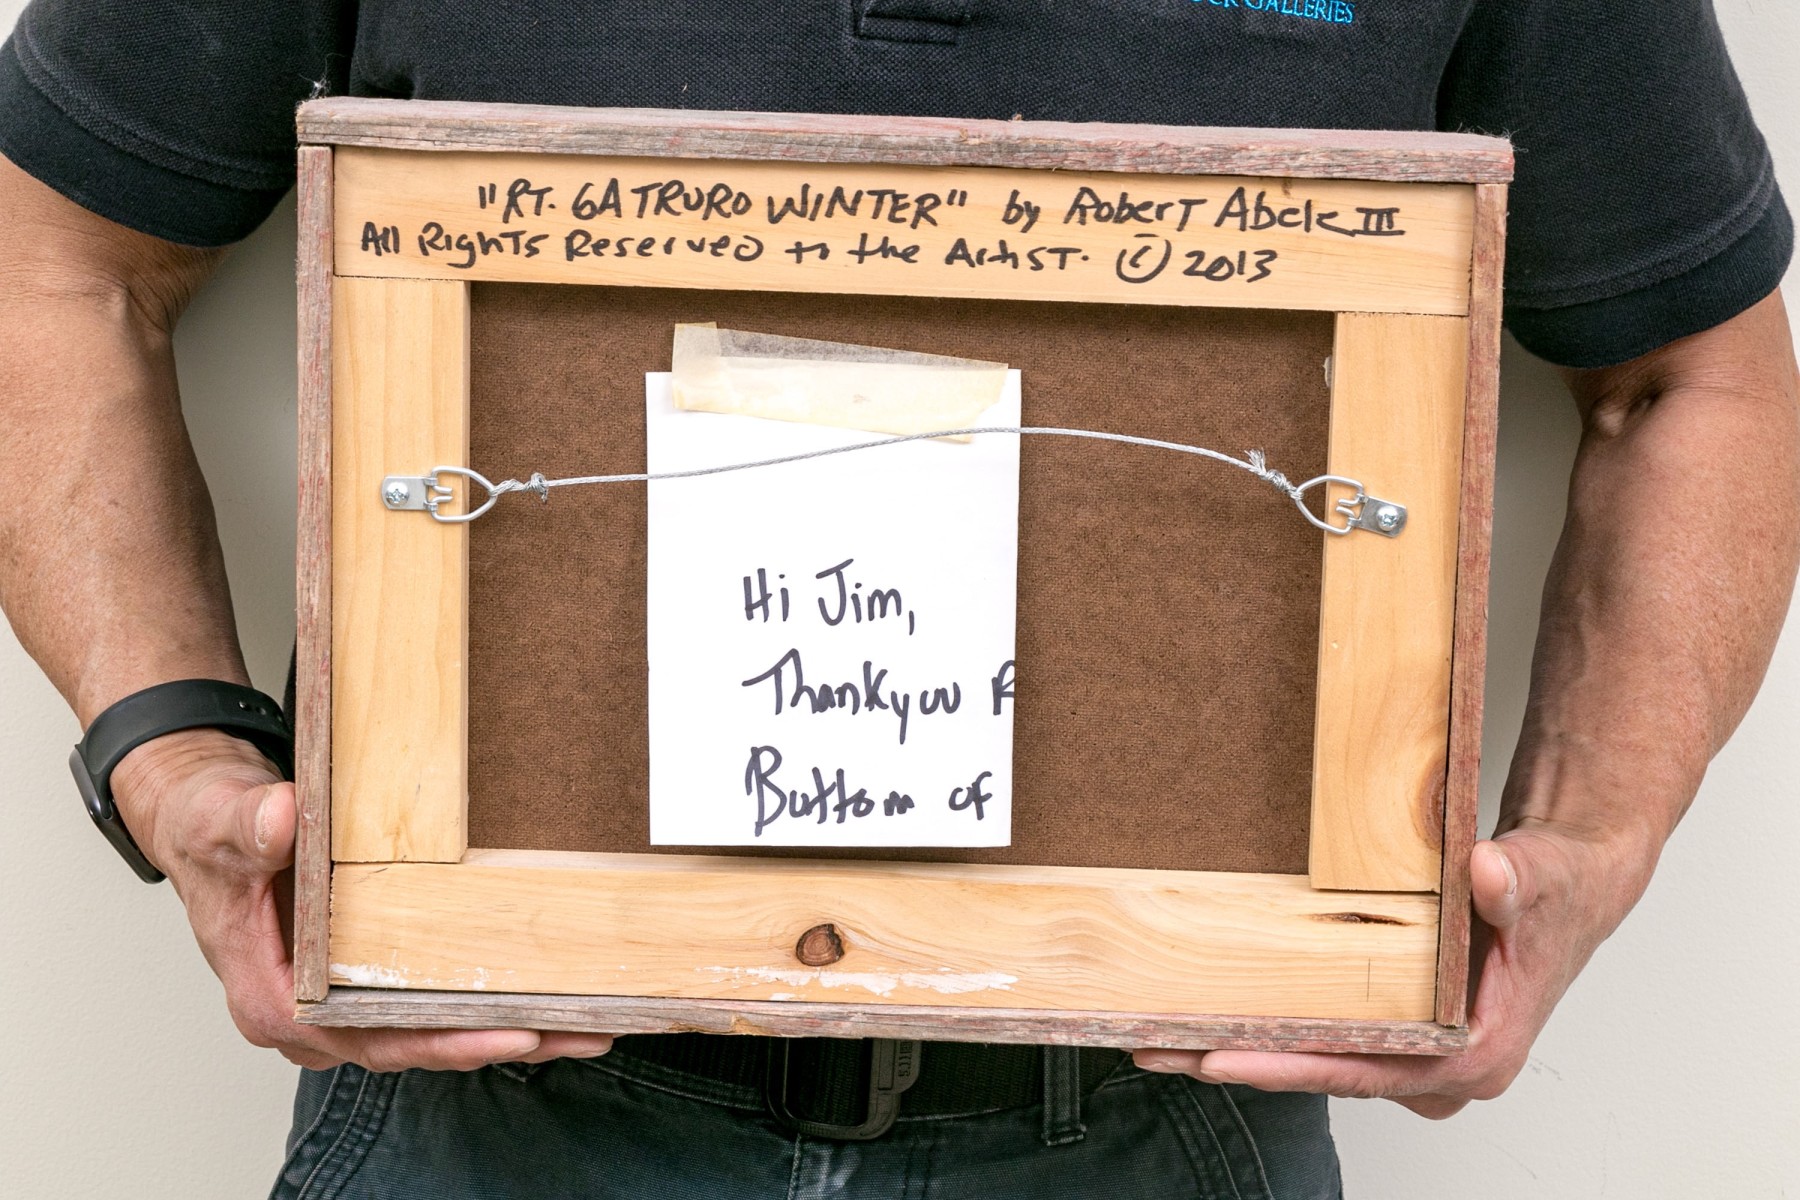 GALLERIES
"RT. 6A TRURO WINTER" by Robert Abele III
All Rights Reserved to the Artist. © 2013
Hi Jim,
Thankyou F
Buttom of